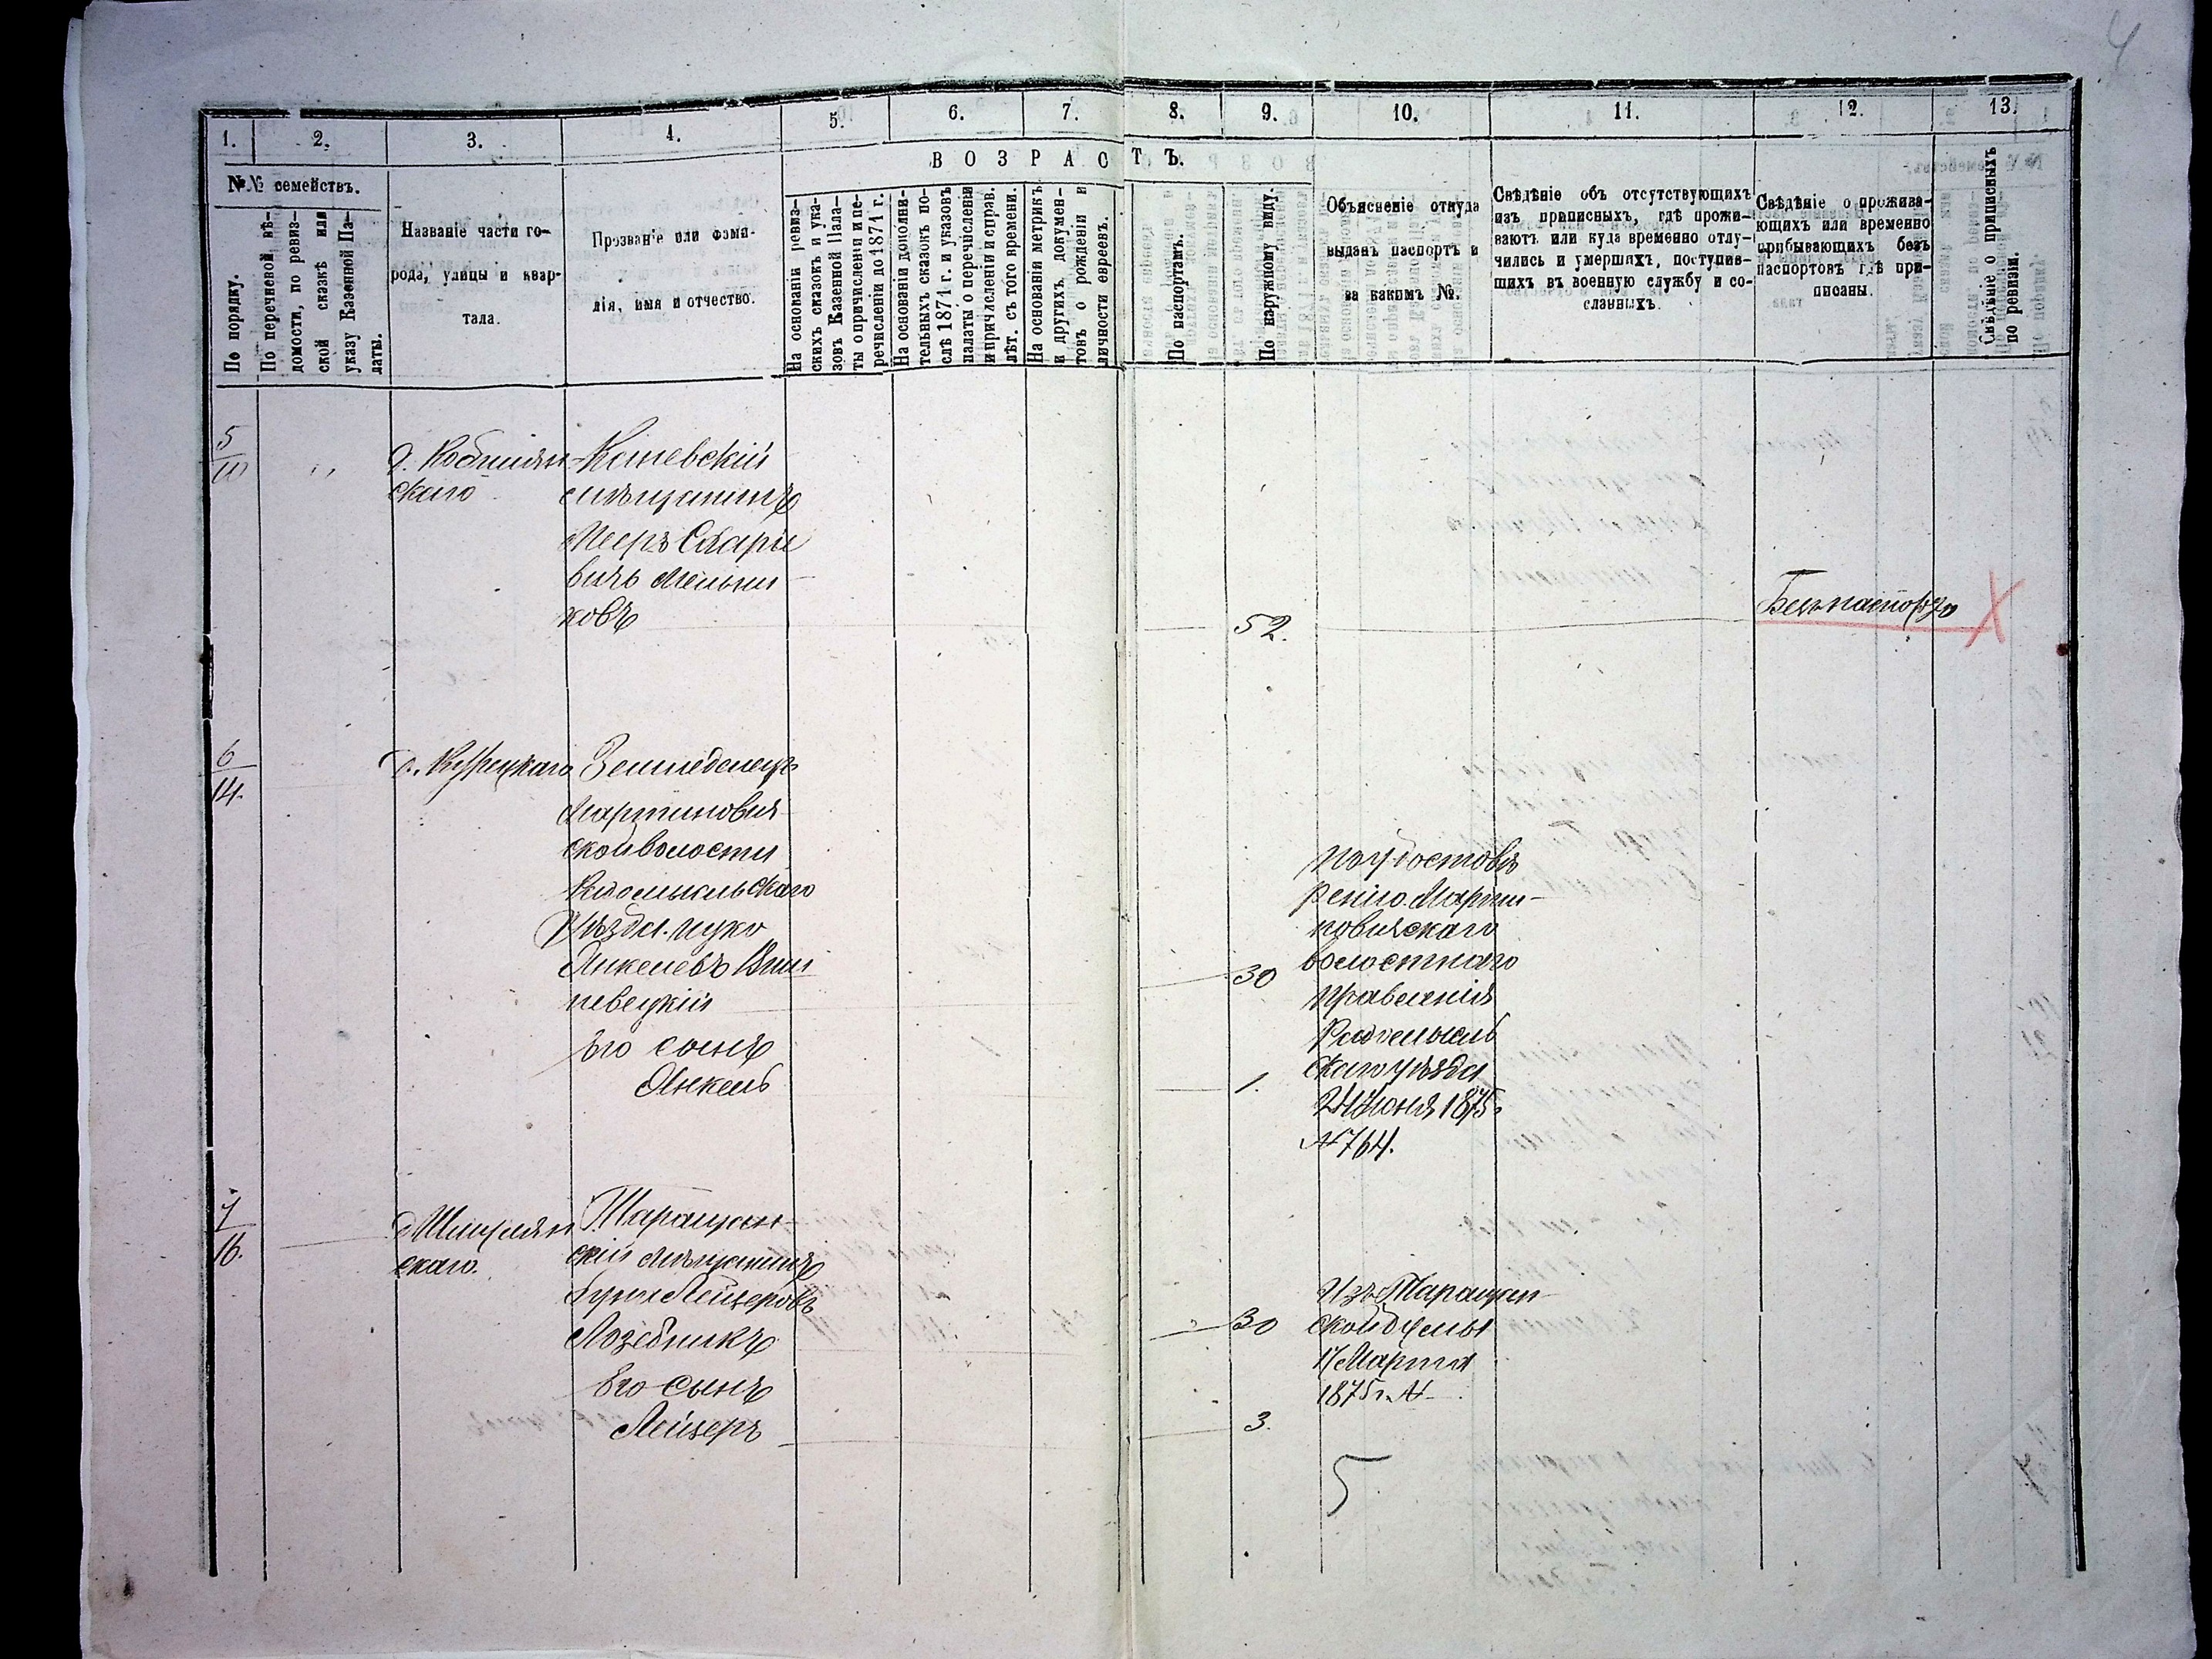 4
1. 2. 3. 4. 5. 6. 7. 8. 9. 10. 11. 12. 13.
№№ семействъ.
В О З Р А С Т Ъ.
По порядку.
По перечневой вѣ-
домости, по ревиз-
ской сказкѣ или
указу Казенной Па-
латы.
Названіе части го-
рода, улицы и квар-
тала.
Прозваніе или фами-
лія, имя и отчество.
На основаніи ревиз-
скихъ сказокъ и ука-
зовъ Казенной Пала-
ты о причисленіи и пе-
речисленіи до 1871 г.
На основаніи дополни-
тельныхъ сказокъ по-
слѣ 1871 г. и указовъ
палаты о перечисленіи
и причисленіи и справ.
лѣт. съ того времени.
На основаніи метрикъ
и другихъ докумен-
товъ о рожденіи и
личности евреевъ.
По паспортамъ.
По наружному виду.
Объясненіе откуда
выданъ паспортъ и
за какимъ №.
Свѣдѣніе объ отсутствующихъ
изъ приписныхъ, гдѣ прожи-
ваютъ или куда временно отлу-
чились и умершихъ, поступив-
шихъ въ военную службу и со-
сланныхъ.
Свѣдѣніе о прожива-
ющихъ или временно
прибывающихъ безъ
паспортовъ гдѣ при-
писаны.
Свѣдѣніе о приписныхъ
по ревизіи.
5
10
скаго
Кіевскій
мѣщанинъ
вичъ Мельни
ковъ
52.
Безъ паспорта
X
6
14.
Земледелецъ
Мартинович
ской волости
Радомысльскаго
Уѣзда
Янкелевъ Виш
невецкій
Его сынъ
Янкель
30
1.
По удостовѣ
ренію Марти-
новичскаго
волостнаго
Правленія
Радомысль
скаго уѣзда
Іюня 1875г
№ 764.
7
16.
скаго.
Таращан-
скій мѣщанинъ
Лейзеровъ
Лозебникъ
Его сынъ
Лейзеръ
30
3.
Изъ Таращан
ской думы
17 Марта
1875 г. №
5